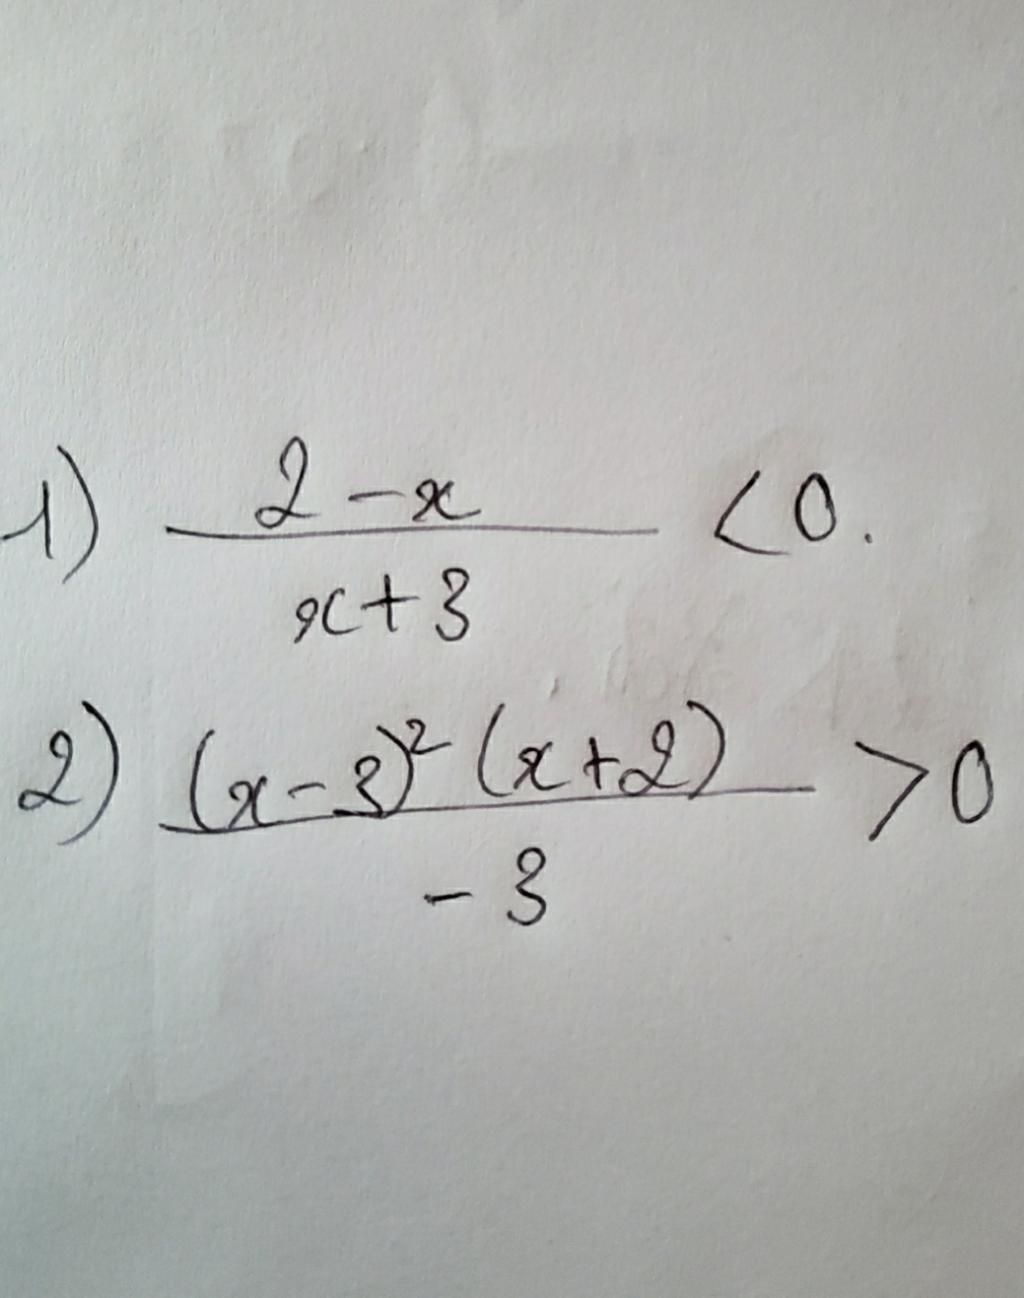 1) (2-x)/(x+3) <0.
2) ((x-3)²(x+2))/(-3) >0